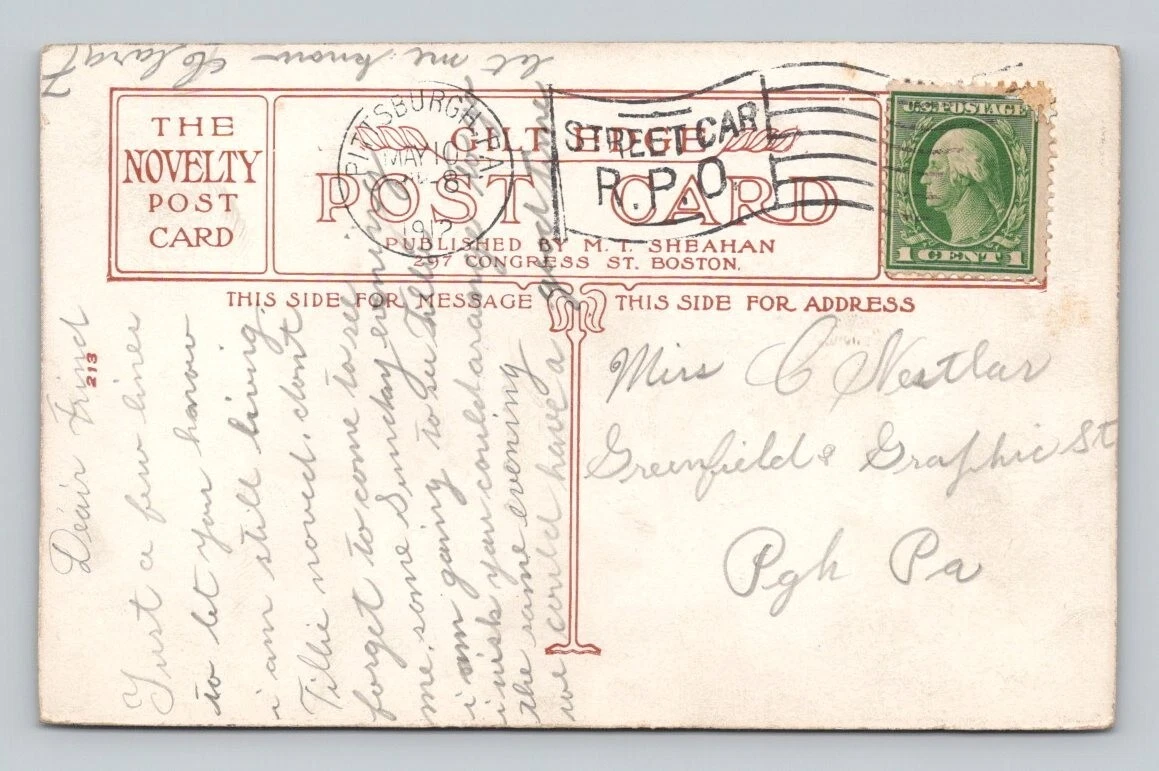 THE
NOVELTY
POST
CARD
GILT EDGE
POST CARD
PUBLISHED BY M. T. SHEAHAN
297 CONGRESS ST. BOSTON.
PITTSBURGH PA
MAY 10
8
1912
STREET CAR
R.P.O.
U.S. POSTAGE
1 CENT 1
THIS SIDE FOR MESSAGE
THIS SIDE FOR ADDRESS
213
Dear Frind
Just a few lines
to let you know
i am still living
Tillie moved. dont
forget to come to see
me some Sunday evening
i am going to see Tillie
i wish you could arange
the same evening
we could have a good time
let me know
Miss C Nestlar
Greenfield & Graphic St
Pgh Pa